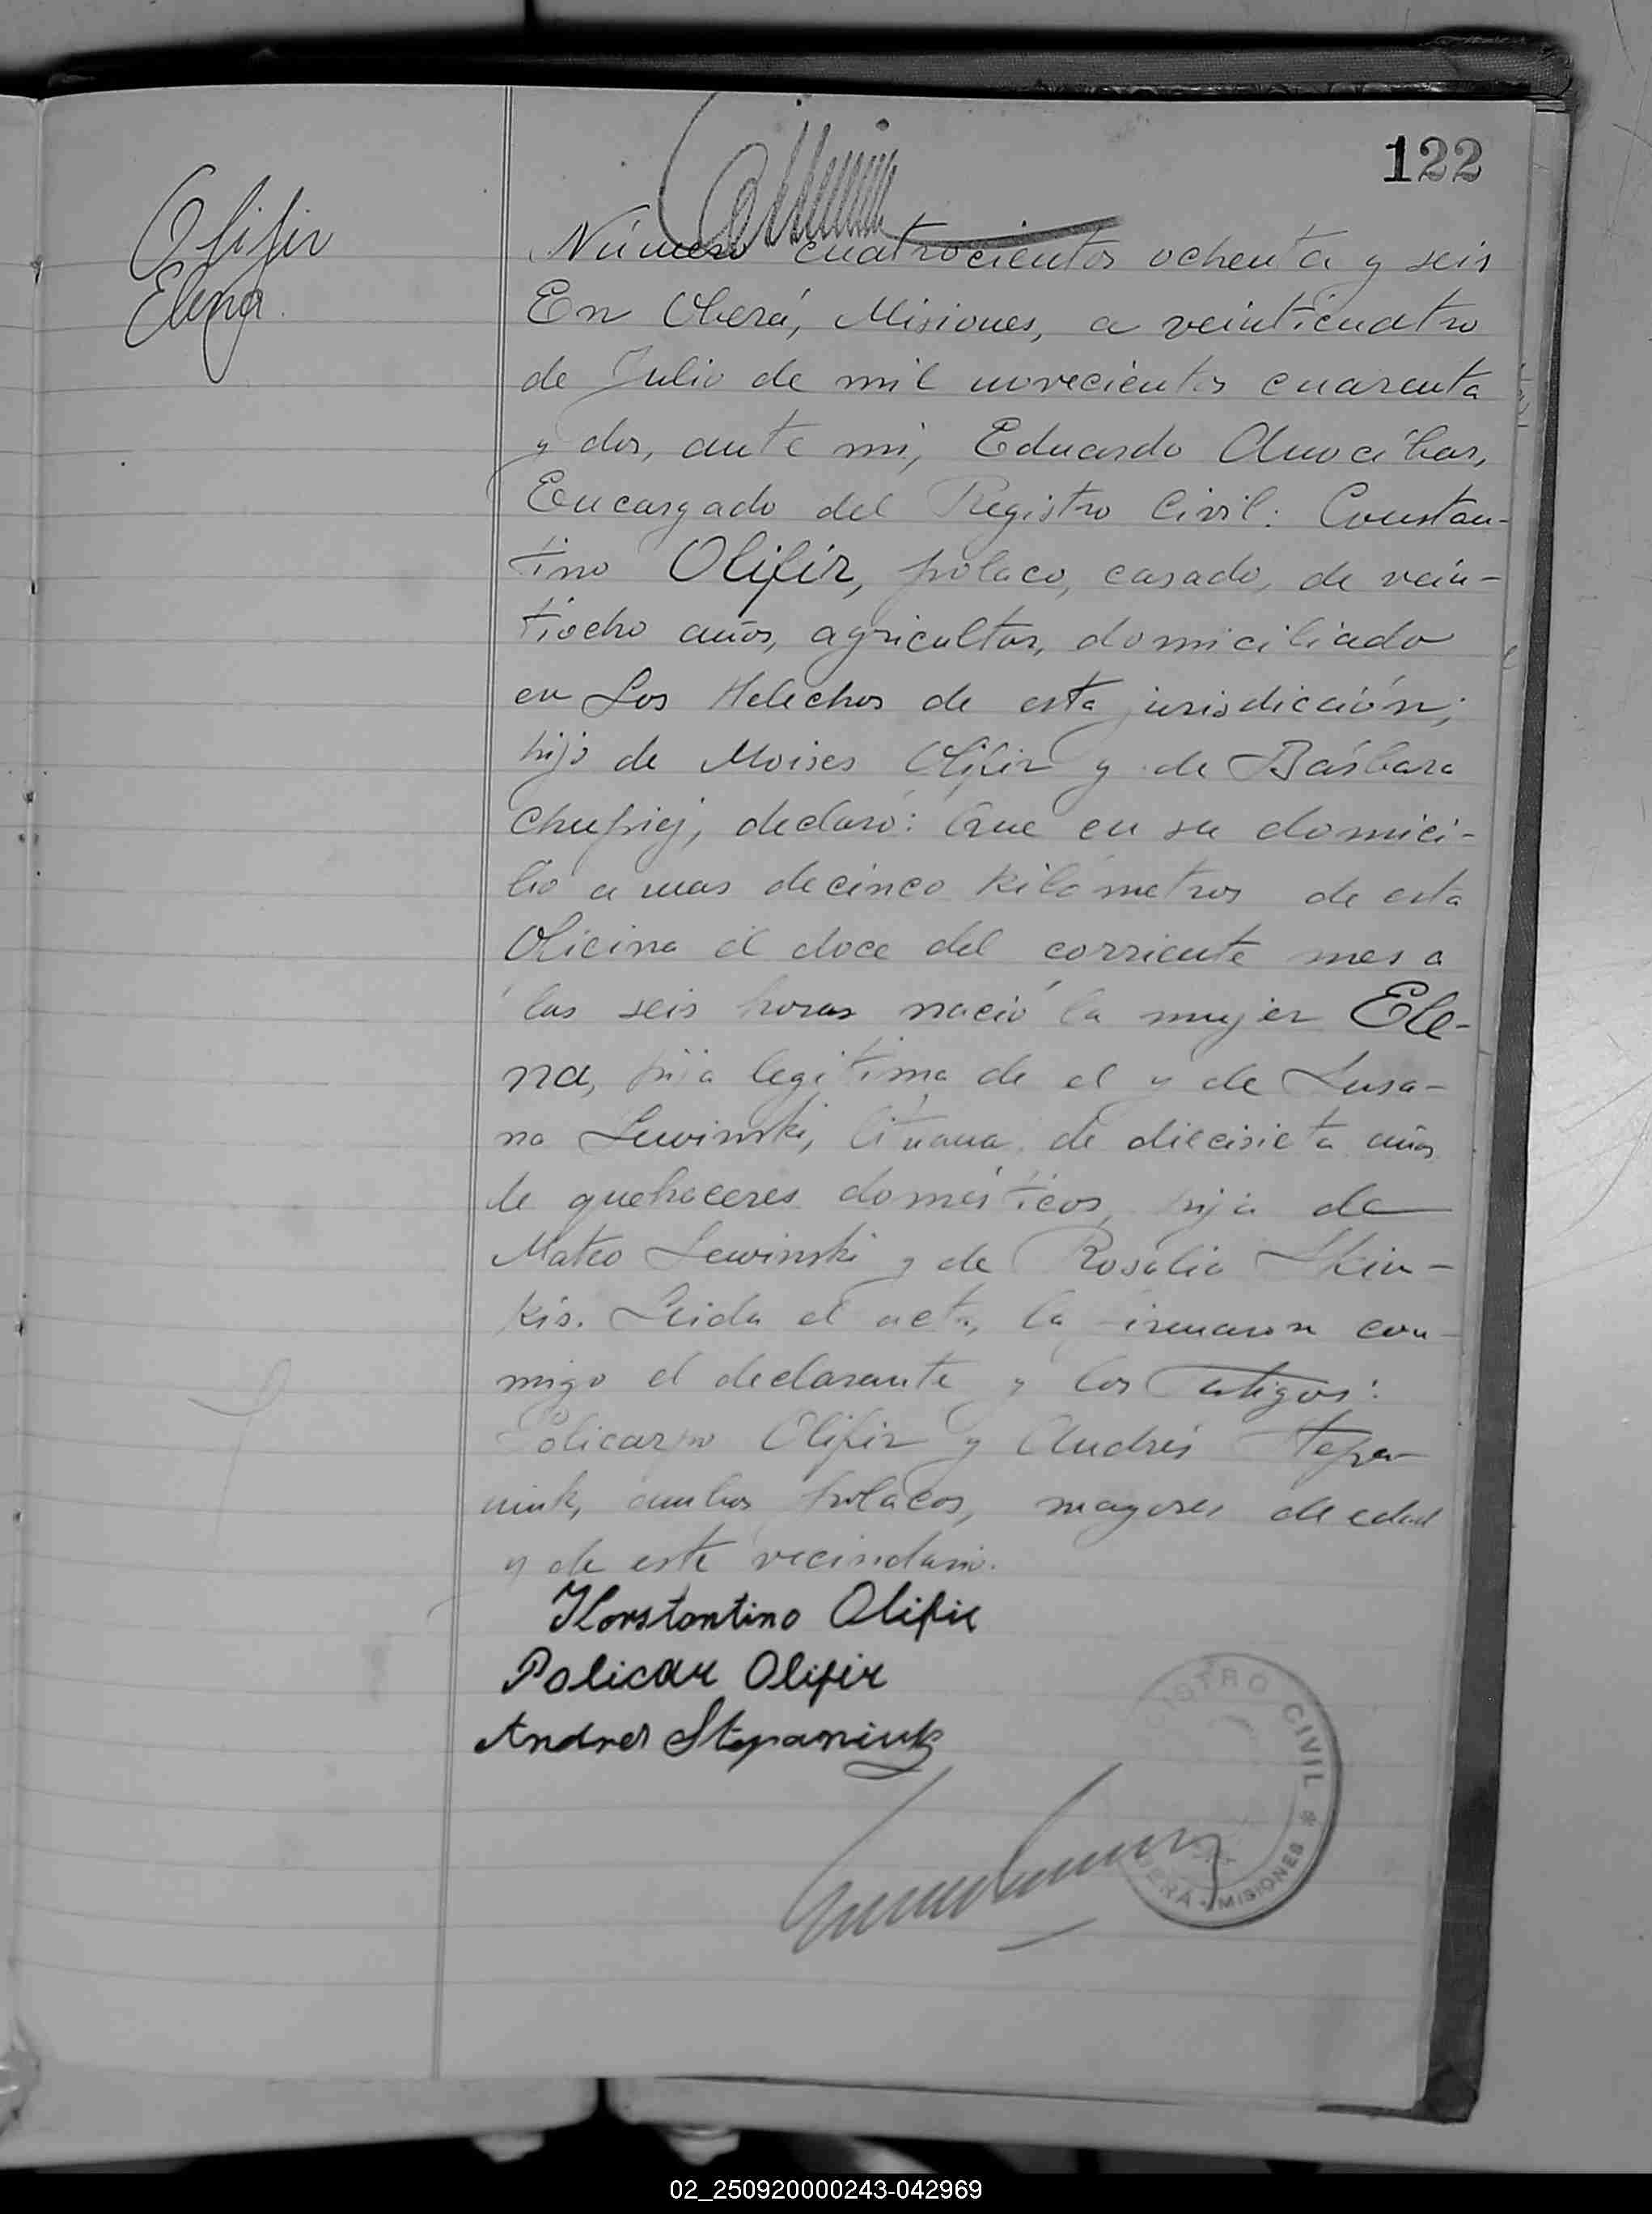 122
Olifir
Elena.
Número cuatrocientos ochenta y seis
En Oberá, Misiones, a veinticuatro
de Julio de mil novecientos cuarenta
y dos, ante mi, Eduardo
Encargado del Registro Civil: Constan-
tino Olifir, polaco, casado, de vein-
tiocho años, agricultor, domiciliado
en Los Helechos de esta jurisdicción;
hijo de Moises Olifir y de Bárbara
declaró: Que en su domici-
lio a mas de cinco kilómetros de esta
Oficina el doce del corriente mes a
las seis horas nació la mujer Ele-
na, hija legitima de el y de Susa-
na Lewinski, lituana, de diecisiete años
de quehaceres domésticos, hija de
Mateo Lewinski y de Rosalia Skin-
kis. Leida el acta, la firmaron con-
migo el declarante y los testigos:
Policarpo Olifir y Andrés Stepa-
niuk, ambos polacos, mayores de edad
y de este vecindario.
Konstontino Olifir
Policar Olifir
Andres Stepaniuk
REGISTRO CIVIL * OBERÁ - MISIONES
02_250920000243-042969